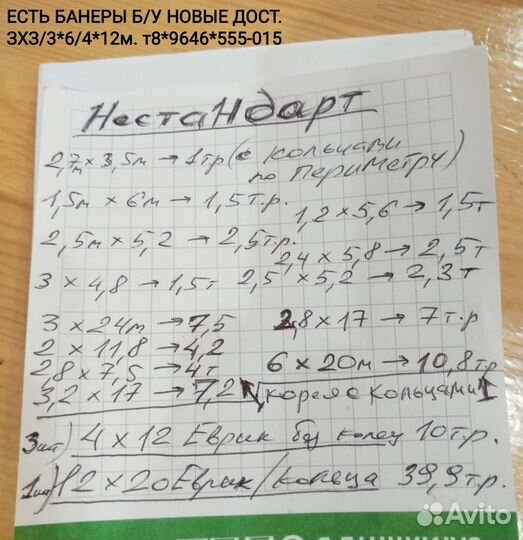 ЕСТЬ БАНЕРЫ Б/У НОВЫЕ ДОСТ.
3Х3/3*6/4*12м. т8*9646*555-015
НестаНдарт
2,7м х 3,5м → 1тр (с кольцами
по Периметру)
1,5м х 6м → 1,5т.р.
1,2 х 5,6 → 1,5т
2,5м х 5,2 → 2,5т.р.
2,4 х 5,8 → 2,5т
3 х 4,8 → 1,5т
2,5 х 5,2 → 2,3т
3 х 24м → 7,5
2,8 х 17 → 7т.р
2 х 11,8 → 4,2
2,8 х 7,5 → 4т
6 х 20м → 10,8тр
3,2 х 17 → 7,2
корея с кольцами
3шт) 4 х 12 Еврик без колец 10тр.
1шт) 12 х 20 Еврик/кольца 39,9тр.
Avito